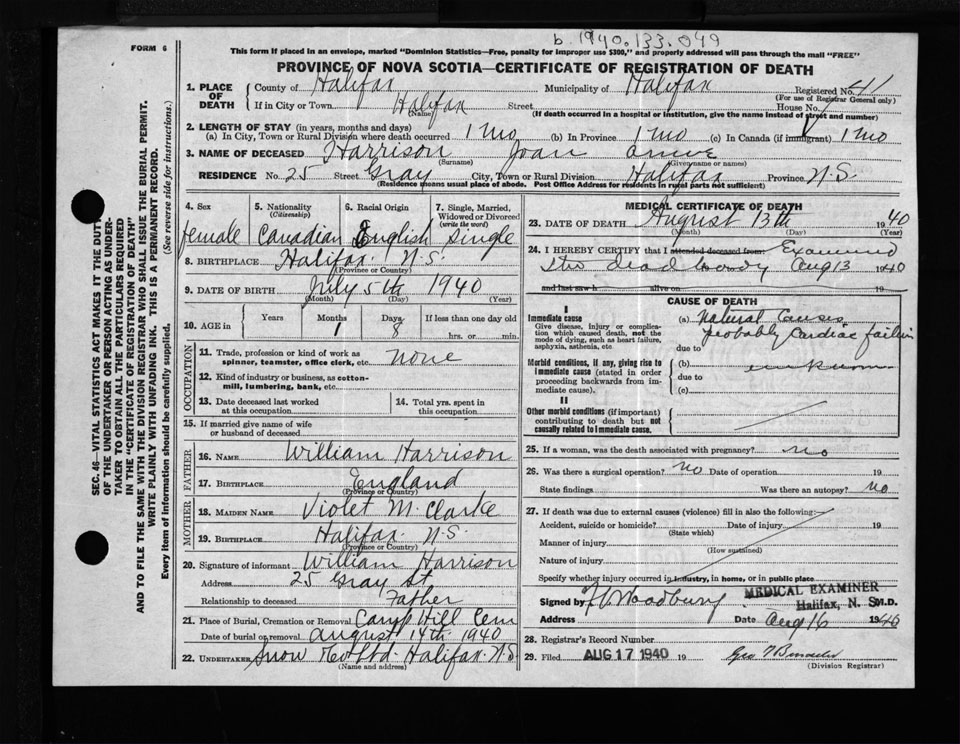 b. 1940.133.049
FORM 6
This form if placed in an envelope, marked "Dominion Statistics—Free, penalty for improper use $300," and properly addressed will pass through the mail "FREE"
PROVINCE OF NOVA SCOTIA—CERTIFICATE OF REGISTRATION OF DEATH
1. PLACE OF DEATH
County of Halifax Municipality of Halifax Registered No. 411
(For use of Registrar General only)
If in City or Town Halifax Street House No.
(Name) (If death occurred in a hospital or institution, give the name instead of street and number)
2. LENGTH OF STAY (in years, months and days)
(a) In City, Town or Rural Division where death occurred 1 mo (b) In Province 1 mo (c) In Canada (if immigrant) 1 mo
3. NAME OF DECEASED Harrison Joan Anne
(Surname) (Given name or names)
RESIDENCE No. 25 Street Gray City, Town or Rural Division Halifax Province N.S.
(Residence means usual place of abode. Post Office Address for residents in rural parts not sufficient)
4. Sex 5. Nationality (Citizenship) 6. Racial Origin 7. Single, Married, Widowed or Divorced (write the word)
female Canadian English Single
8. BIRTHPLACE Halifax N.S.
(Province or Country)
9. DATE OF BIRTH July 5th 1940
(Month) (Day) (Year)
10. AGE in Years Months Days If less than one day old
1 8 hrs. or min.
OCCUPATION
11. Trade, profession or kind of work as spinner, teamster, office clerk, etc. none
12. Kind of industry or business, as cotton-mill, lumbering, bank, etc.
13. Date deceased last worked at this occupation
14. Total yrs. spent in this occupation
15. If married give name of wife or husband of deceased
FATHER
16. NAME William Harrison
17. BIRTHPLACE England
(Province or Country)
MOTHER
18. MAIDEN NAME Violet M. Clarke
19. BIRTHPLACE Halifax N.S.
(Province or Country)
20. Signature of informant William Harrison
Address 25 Gray St
Relationship to deceased Father
21. Place of Burial, Cremation or Removal Camp Hill Cem
Date of burial or removal August 14th 1940
22. UNDERTAKER Snow & Co Ltd. Halifax N.S.
(Name and address)
MEDICAL CERTIFICATE OF DEATH
23. DATE OF DEATH August 13th 1940
(Month) (Day) (Year)
24. I HEREBY CERTIFY that I attended deceased from Examined
the dead body Aug 13 1940
and last saw h alive on 19
CAUSE OF DEATH
I
Immediate cause
Give disease, injury or complication which caused death, not the mode of dying, such as heart failure, asphyxia, asthenia, etc.
(a) Natural Causes
probably Cardiac failure
due to
Morbid conditions, if any, giving rise to immediate cause (stated in order proceeding backwards from immediate cause).
(b) unknown
due to
(c)
II
Other morbid conditions (if important) contributing to death but not causally related to immediate cause.
25. If a woman, was the death associated with pregnancy? no
26. Was there a surgical operation? no Date of operation 19
State findings Was there an autopsy? no
27. If death was due to external causes (violence) fill in also the following:
Accident, suicide or homicide? Date of injury 19
(State which)
Manner of injury
(How sustained)
Nature of injury
Specify whether injury occurred in industry, in home, or in public place
Signed by Woodbury MEDICAL EXAMINER
Halifax, N. S. M.D.
Address Date Aug 16 1940
28. Registrar's Record Number
29. Filed AUG 17 1940 19
(Division Registrar)
SEC. 46—VITAL STATISTICS ACT MAKES IT THE DUTY
OF THE UNDERTAKER OR PERSON ACTING AS UNDER-
TAKER TO OBTAIN ALL THE PARTICULARS REQUIRED
IN THE "CERTIFICATE OF REGISTRATION OF DEATH"
AND TO FILE THE SAME WITH THE DIVISION REGISTRAR WHO SHALL ISSUE THE BURIAL PERMIT.
WRITE PLAINLY WITH UNFADING INK. THIS IS A PERMANENT RECORD.
Every item of information should be carefully supplied. (See reverse side for instructions.)